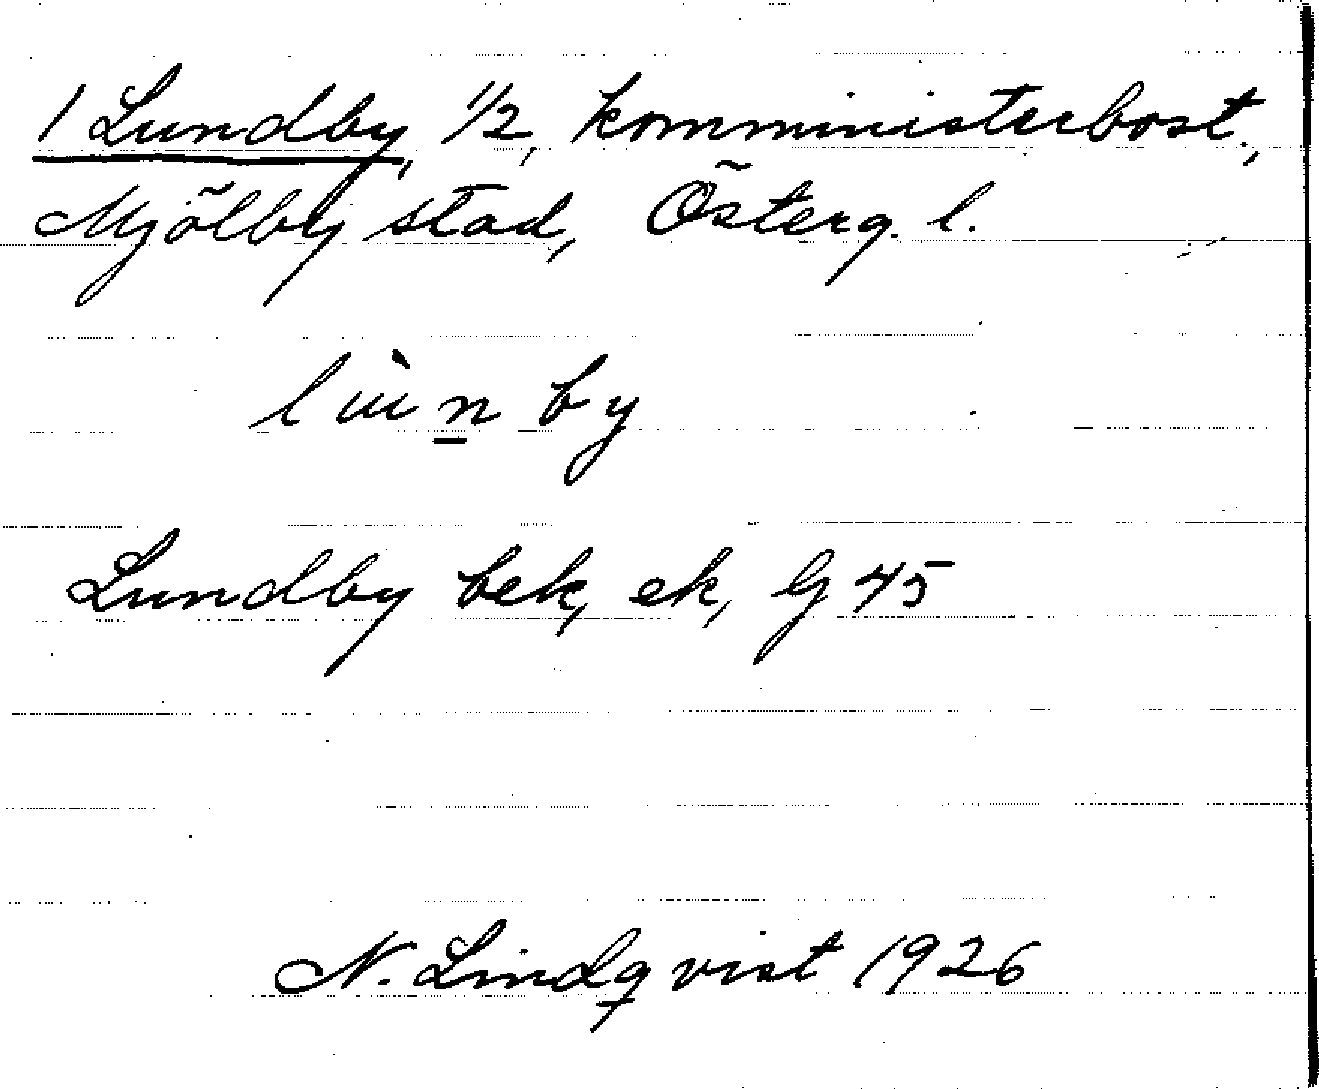 1 Lundby, 1/2, komministerbost.,
Mjölby stad, Österg. l.
Lundby bek, ek, G 45
N. Lindqvist 1926